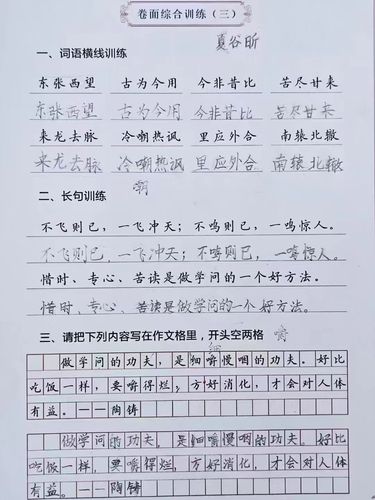 卷面综合训练（三）
夏谷昕
一、词语横线训练
东张西望 古为今用 今非昔比 苦尽甘来
东张西望 古为今用 今非昔比 苦尽甘来
来龙去脉 冷嘲热讽 里应外合 南辕北辙
来龙去脉 冷嘲热讽 里应外合 南辕北辙
嘲
二、长句训练
不飞则已，一飞冲天；不鸣则已，一鸣惊人。
不飞则已，一飞冲天；不鸣则已，一鸣惊人。
惜时、专心、苦读是做学问的一个好方法。
惜时、专心、苦读是做学问的一个好方法。
三、请把下列内容写在作文格里，开头空两格 嚼
细
做学问的功夫，是细嚼慢咽的功夫。好比
吃饭一样，要嚼得烂，方好消化，才会对人体
有益。——陶铸
做学问的功夫，是细嚼慢咽的功夫。好比
吃饭一样，要嚼得烂，方好消化，才会对人体
有益。——陶铸